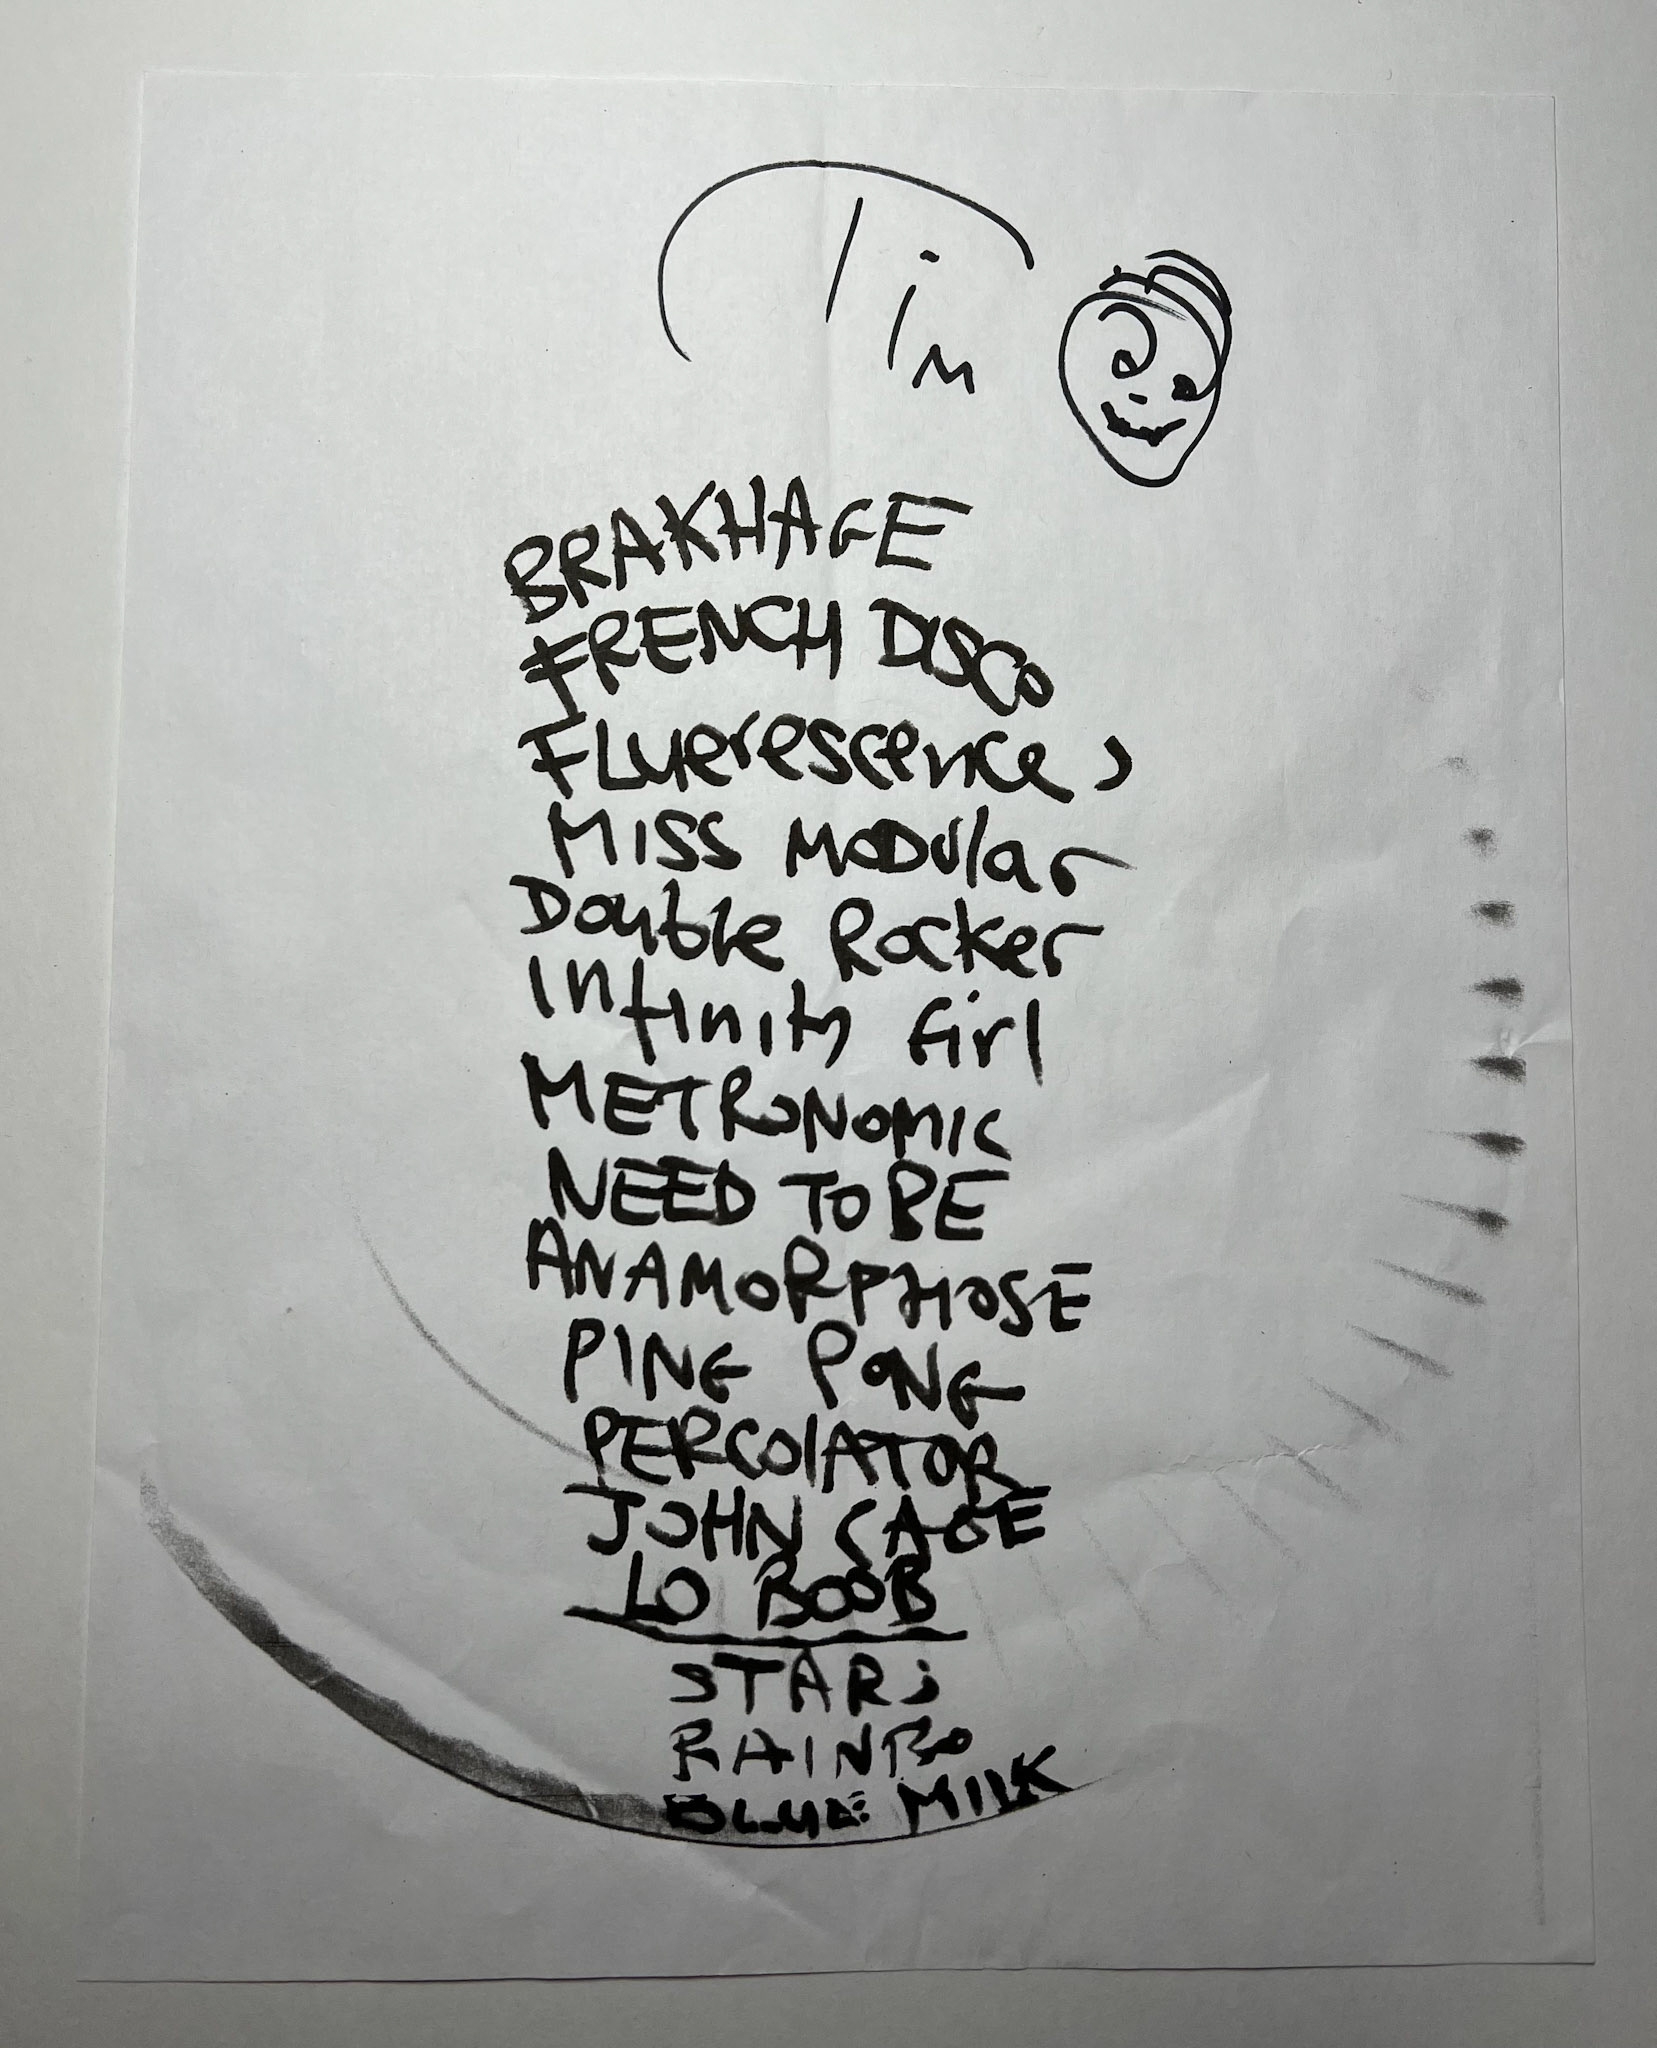 Tim
BRAKHAGE
FRENCH DISCO
Fluerescences
Miss Modular
Double Rocker
Infinity Girl
METRONOMIC
NEED TO BE
ANAMORPHOSE
PING PONG
PERCOLATOR
JOHN CAGE
LO BOOB
STARi
RAINBO
BLUE MILK